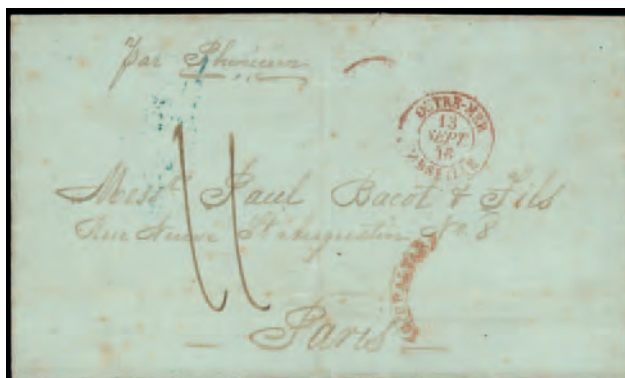 Par Phénicien
OUTRE-MER
13
SEPT
MARSEILLE
11
Mess.rs Paul Bacot & Fils
Rue Neuve St Augustin No. 8
GIBRALTAR
Paris